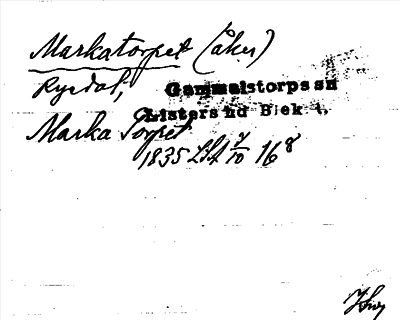 Markatorpet (åker)
Ryedal, Gammalstorps sn
Listers hd Blek. l.
Marka Torpet
1835 LSA 7/10 16⁸